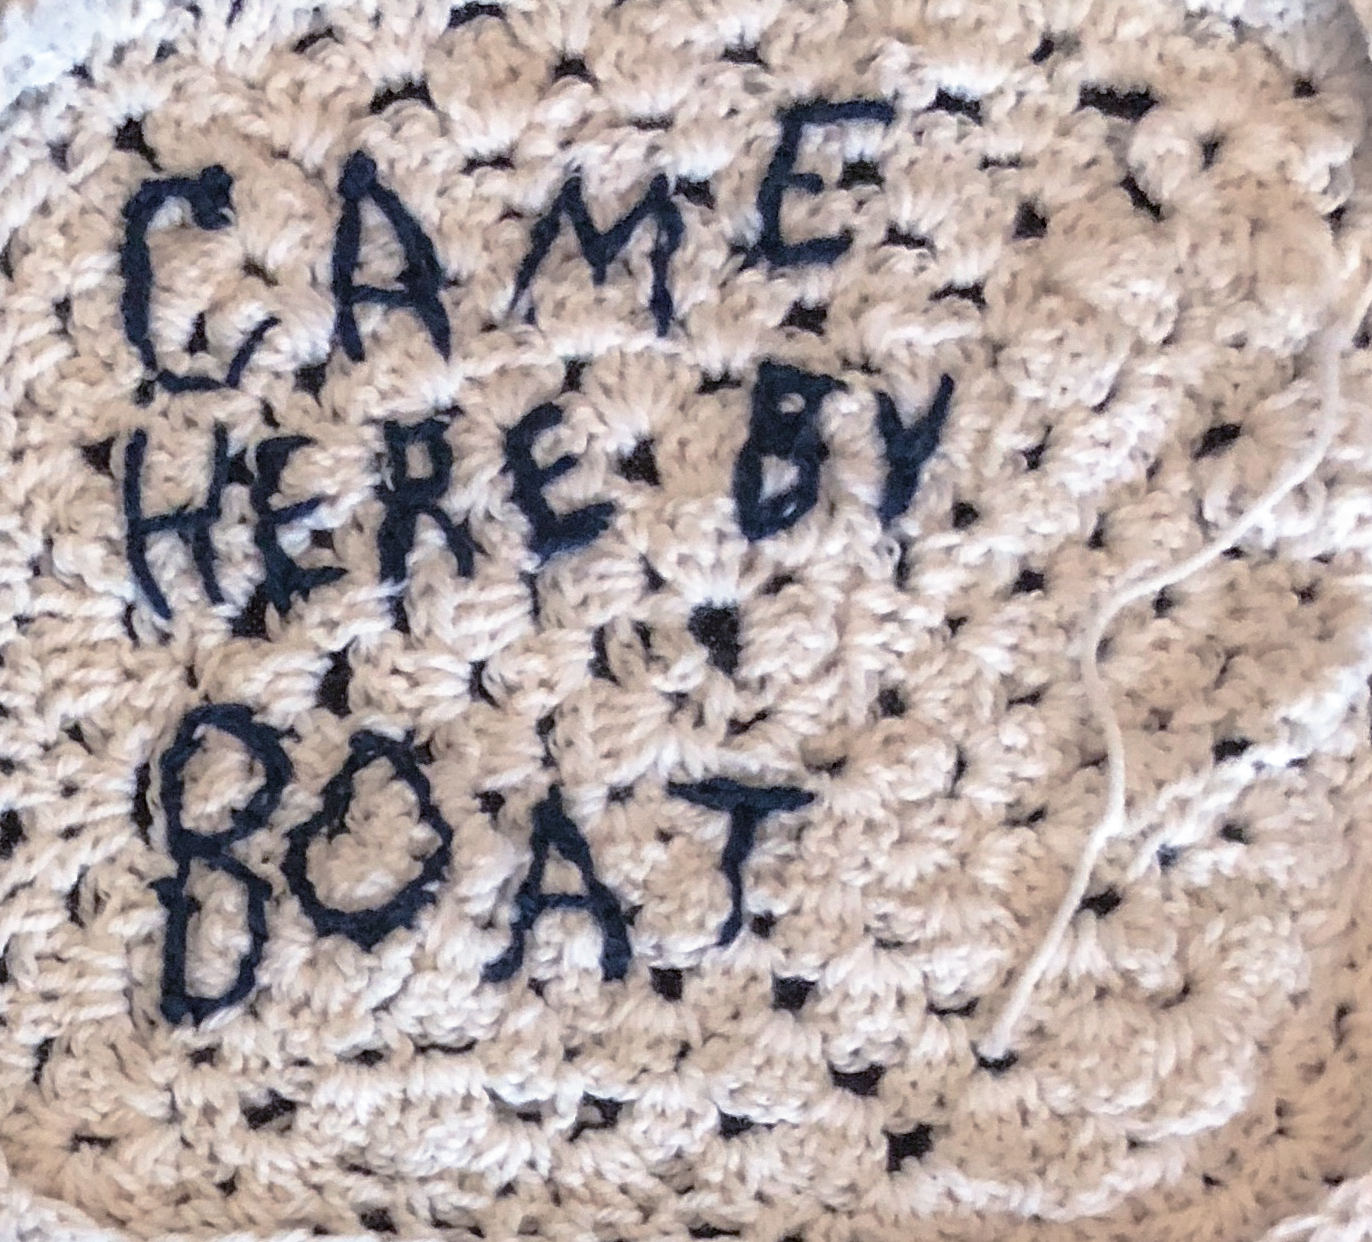 CAME
HERE BY
BOAT